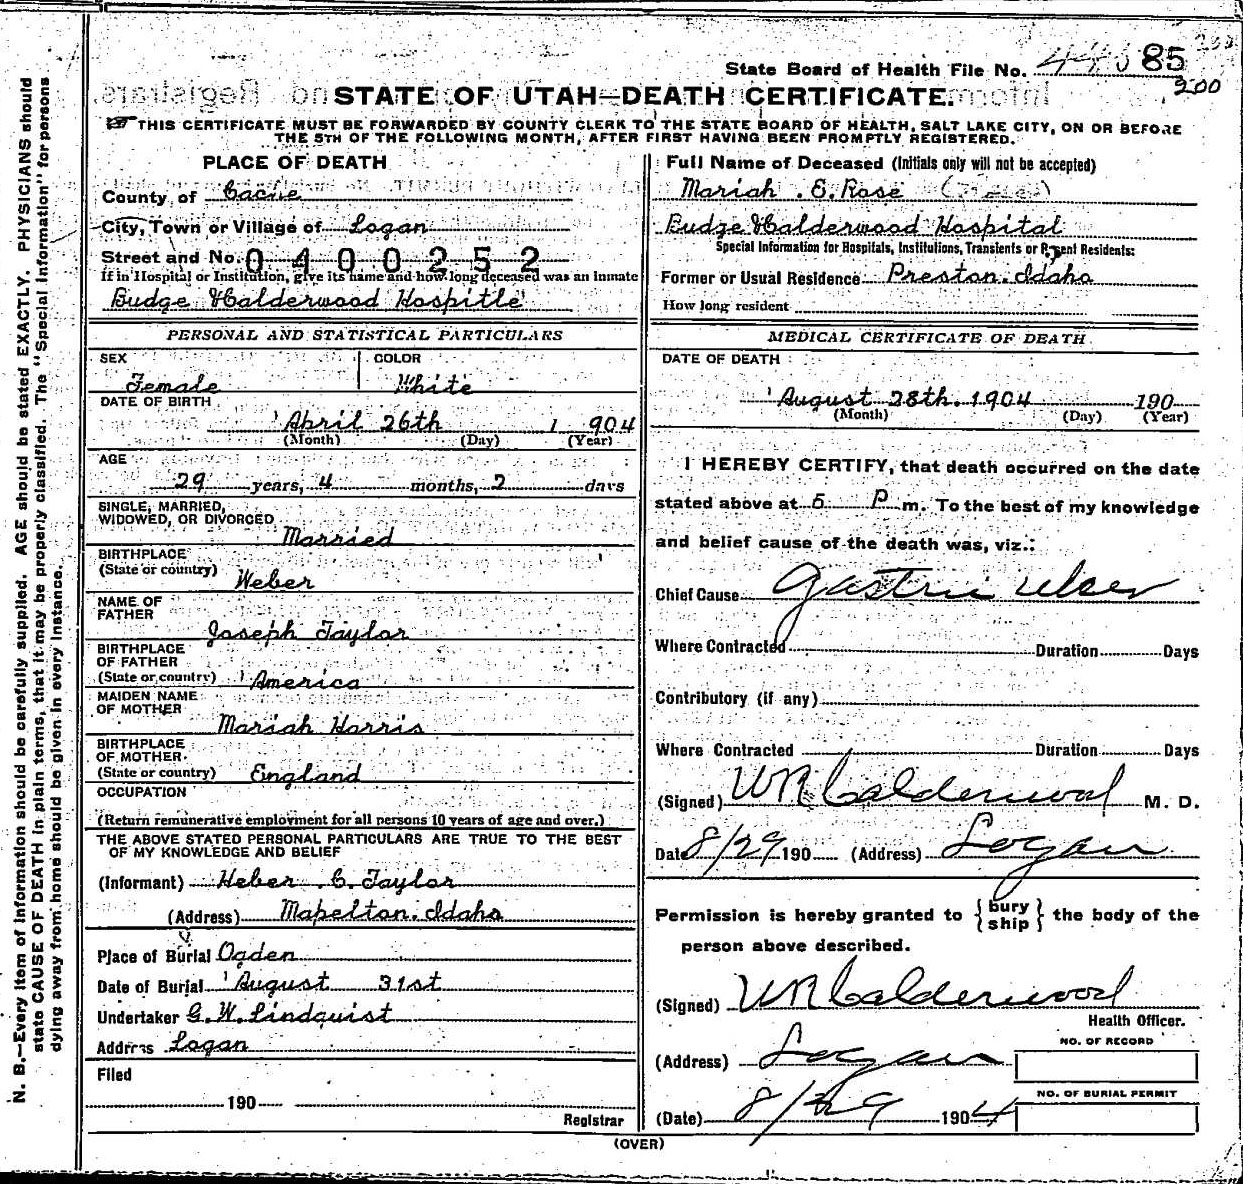 State Board of Health File No. 85
300
STATE OF UTAH—DEATH CERTIFICATE.
THIS CERTIFICATE MUST BE FORWARDED BY COUNTY CLERK TO THE STATE BOARD OF HEALTH, SALT LAKE CITY, ON OR BEFORE
THE 5TH OF THE FOLLOWING MONTH, AFTER FIRST HAVING BEEN PROMPTLY REGISTERED.
PLACE OF DEATH
County of Cache
City, Town or Village of Logan
Street and No. 0400252
If in Hospital or Institution, give its name and how long deceased was an inmate
Budge & Calderwood Hospitle
PERSONAL AND STATISTICAL PARTICULARS
SEX COLOR
Female White
DATE OF BIRTH
April 26th 1 904
(Month) (Day) (Year)
AGE
29 years, 4 months, 2 days
SINGLE, MARRIED,
WIDOWED, OR DIVORCED
Married
BIRTHPLACE
(State or country) Weber
NAME OF
FATHER
Joseph Taylor
BIRTHPLACE
OF FATHER
(State or country) America
MAIDEN NAME
OF MOTHER
Mariah Harris
BIRTHPLACE
OF MOTHER.
(State or country) England
OCCUPATION
(Return remunerative employment for all persons 10 years of age and over.)
THE ABOVE STATED PERSONAL PARTICULARS ARE TRUE TO THE BEST
OF MY KNOWLEDGE AND BELIEF
(Informant) Heber C. Taylor
(Address) Mapelton. Idaho
Place of Burial Ogden
Date of Burial August 31st
Undertaker G. W. Lindquist
Address Logan
Filed
190
Registrar
Full Name of Deceased (Initials only will not be accepted)
Mariah . E. Rose
Budge & Calderwood Hospital
Special Information for Hospitals, Institutions, Transients or Recent Residents:
Former or Usual Residence Preston. Idaho
How long resident
MEDICAL CERTIFICATE OF DEATH
DATE OF DEATH
August 28th. 1904 190
(Month) (Day) (Year)
I HEREBY CERTIFY, that death occurred on the date
stated above at 5 P m. To the best of my knowledge
and belief cause of the death was, viz.:
Chief Cause Gastric ulcer
Where Contracted Duration Days
Contributory (if any)
Where Contracted Duration Days
(Signed) W R Calderwood M. D.
Date 8/29 190 (Address) Logan
Permission is hereby granted to { bury ship } the body of the
person above described.
(Signed) W R Calderwood
Health Officer.
(Address) Logan
NO. OF RECORD
(Date) 8/29 1904
NO. OF BURIAL PERMIT
(OVER)
N. B.—Every item of information should be carefully supplied. AGE should be stated EXACTLY. PHYSICIANS should
state CAUSE OF DEATH in plain terms, that it may be properly classified. The "Special Information" for persons
dying away from home should be given in every instance.